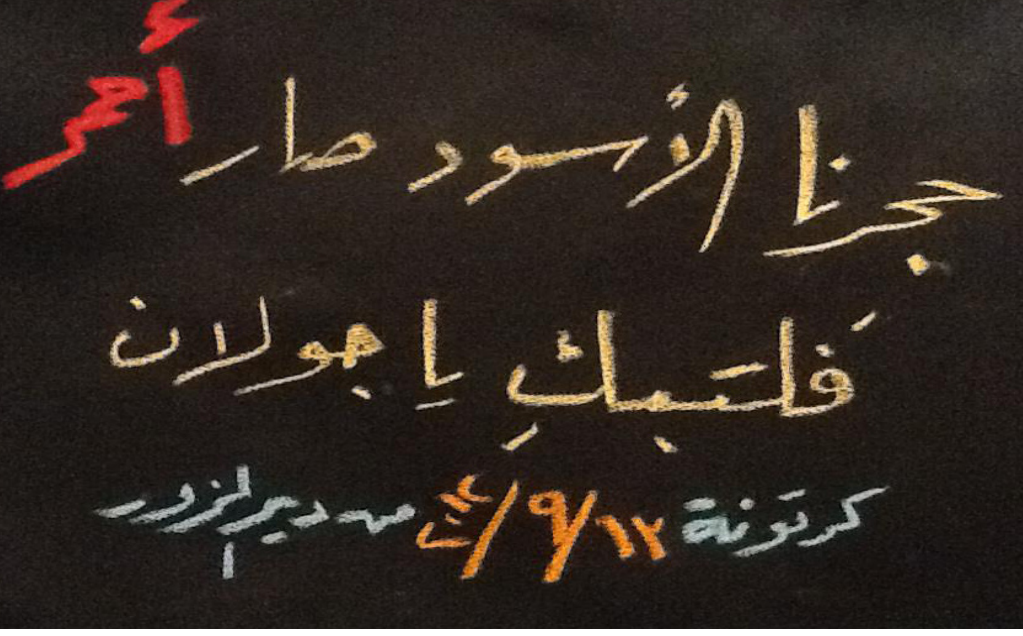 حجرنا الأسود صار أحمر
فلتبكِ يا جولان
كرتونة ١٢/٩/٢٠١٢ من دير الزور